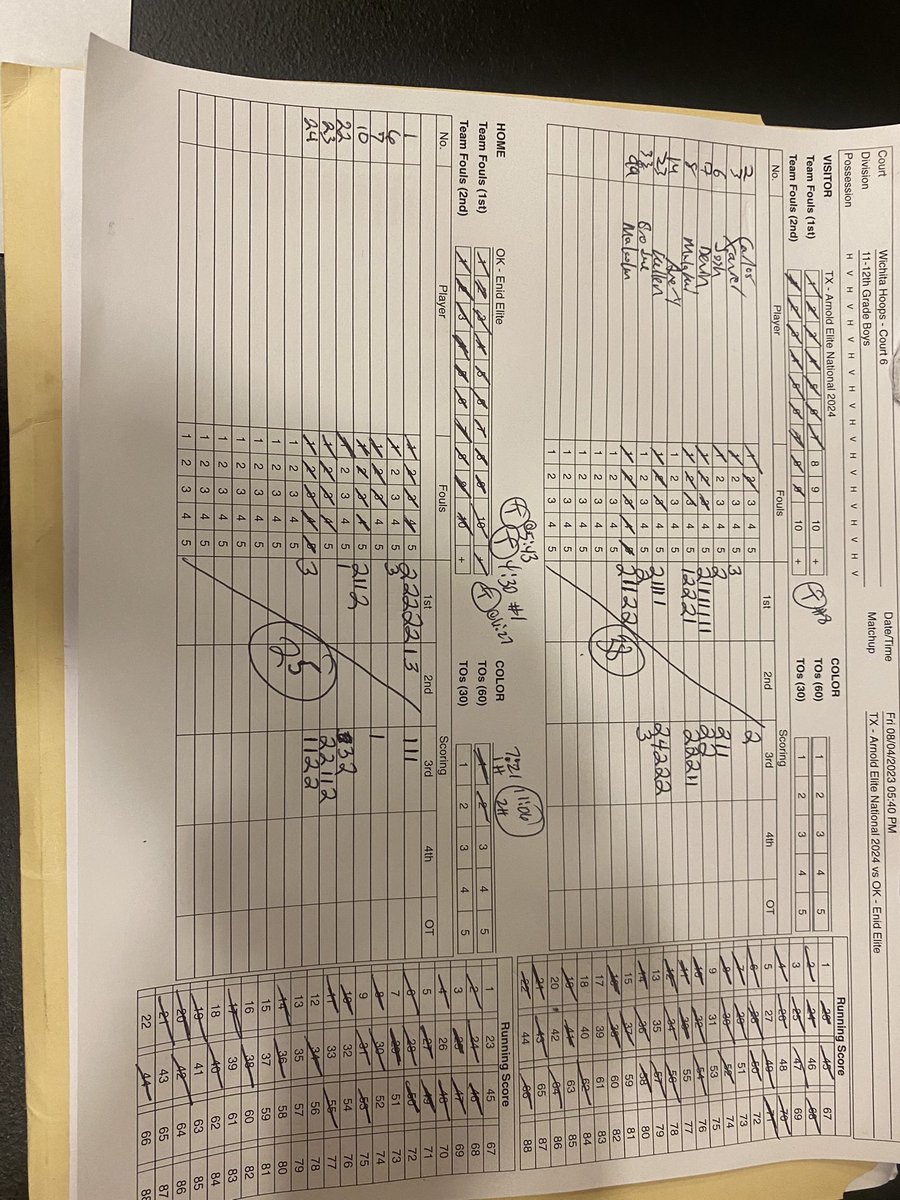 Court Wichita Hoops - Court 6 Date/Time Fri 08/04/2023 05:40 PM
Division 11-12th Grade Boys Matchup TX - Arnold Elite National 2024 vs OK - Enid Elite
Possession H V H V H V H V H V H V H V H V H V
VISITOR TX - Arnold Elite National 2024 COLOR
Team Fouls (1st) 1 2 3 4 5 6 7 8 9 10 + TOs (60) 1 2 3 4 5
Team Fouls (2nd) 1 2 3 4 5 6 7 8 9 10 + TOs (30) 1 2 3 4 5
No. Player Fouls Scoring
1st 2nd 3rd 4th OT
2 Carlos 1 2 3 4 5 2
3 Xavier 1 2 3 4 5 3
6 Josh 1 2 3 4 5 2 211
7 Devin 1 2 3 4 5 2111111 22
8 1 2 3 4 5 12221 22211
14 Avery 1 2 3 4 5
23 1 2 3 4 5 21111 24222
33 Brodie 1 2 3 4 5 2 3
Malcolm 1 2 3 4 5 21122
1 2 3 4 5
1 2 3 4 5
1 2 3 4 5
38
Running Score
1 23 45 67
2 24 46 68
3 25 47 69
4 26 48 70
5 27 49 71
6 28 50 72
7 29 51 73
8 30 52 74
9 31 53 75
10 32 54 76
11 33 55 77
12 34 56 78
13 35 57 79
14 36 58 80
15 37 59 81
16 38 60 82
17 39 61 83
18 40 62 84
19 41 63 85
20 42 64 86
21 43 65 87
22 44 66 88
@5:43 4:30 #1 7:21 1H 11:06 2H
HOME OK - Enid Elite COLOR
Team Fouls (1st) 1 2 3 4 5 6 7 8 9 10 + TOs (60) 1 2 3 4 5
Team Fouls (2nd) 1 2 3 4 5 6 7 8 9 10 + TOs (30) 1 2 3 4 5
No. Player Fouls Scoring
1st 2nd 3rd 4th OT
1 1 2 3 4 5 2222213 111
6 1 2 3 4 5 3
7 1 2 3 4 5 1
10 1 2 3 4 5 2112
22 1 2 3 4 5 1 332
23 1 2 3 4 5 22112
24 1 2 3 4 5 3 1122
1 2 3 4 5
1 2 3 4 5
1 2 3 4 5
1 2 3 4 5
1 2 3 4 5
1 2 3 4 5
25
Running Score
1 23 45 67
2 24 46 68
3 25 47 69
4 26 48 70
5 27 49 71
6 28 50 72
7 29 51 73
8 30 52 74
9 31 53 75
10 32 54 76
11 33 55 77
12 34 56 78
13 35 57 79
14 36 58 80
15 37 59 81
16 38 60 82
17 39 61 83
18 40 62 84
19 41 63 85
20 42 64 86
21 43 65 87
22 44 66 88